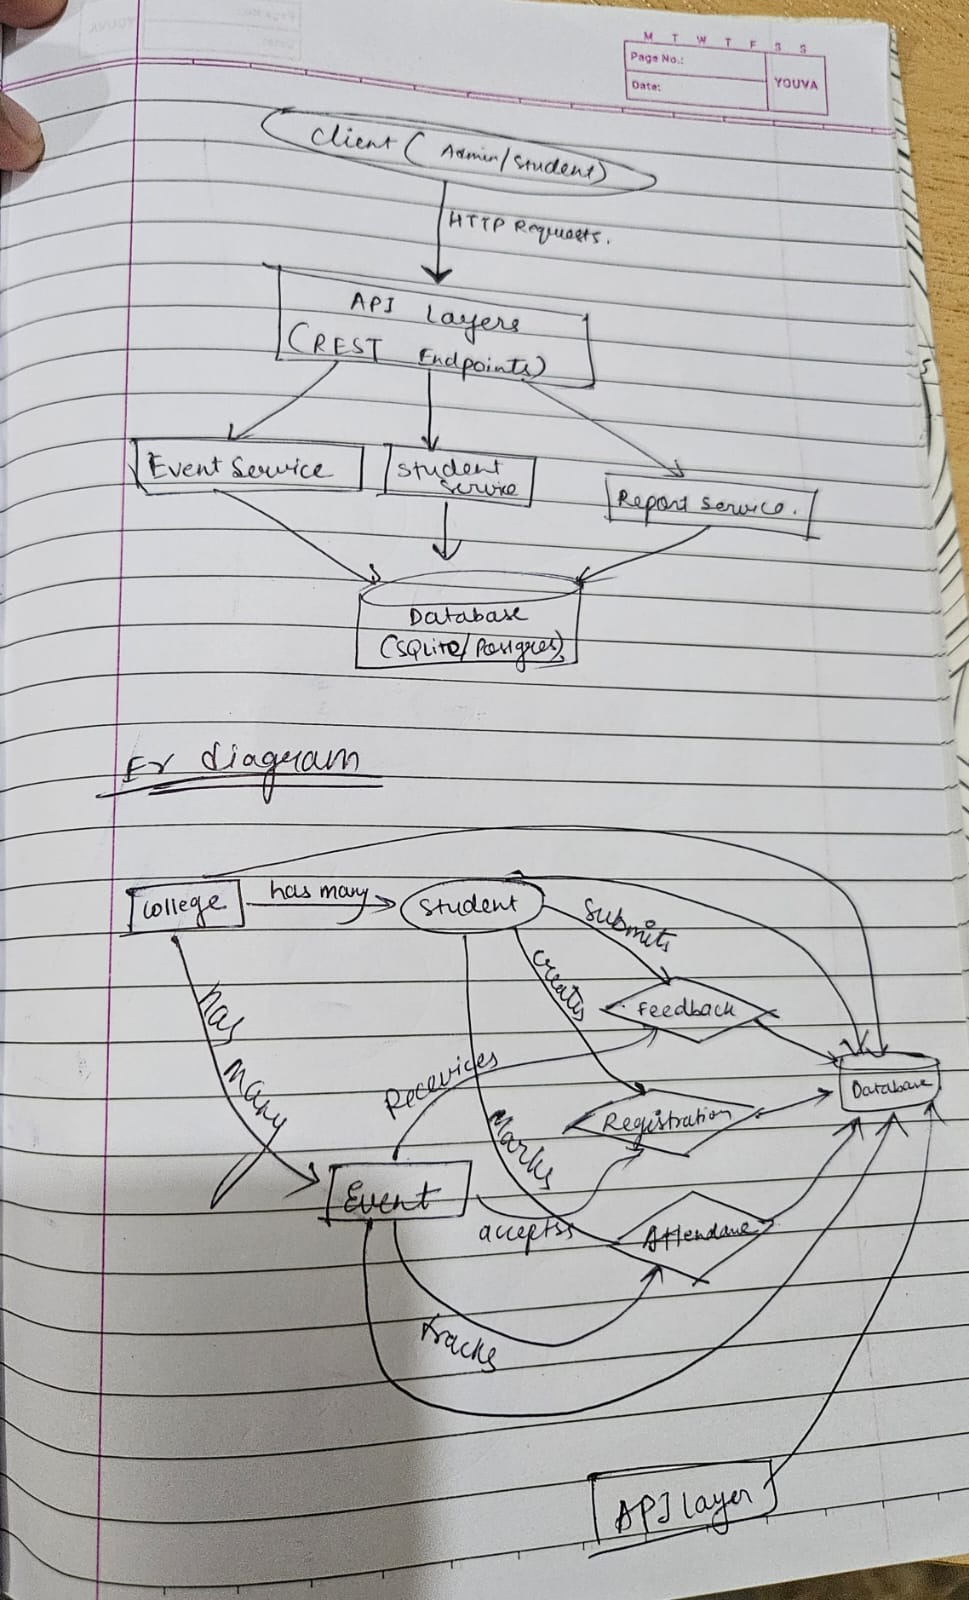 M T W T F S S
Page No.:
Date:
YOUVA
Client ( Admin/Student)
HTTP Requests.
API Layers
(REST Endpoints)
Event Service
Student
Service
Report Service.
Database
(SQLite/Postgres)
Er diagram
College
has many
Student
Submits
creates
Feedback
has
many
Recevices
Database
Registration
Marks
Event
accepts
Attendane
tracks
API layer